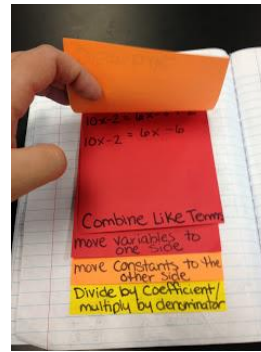 10x-2 = 6x
10x-2 = 6x -6
Combine Like Terms
move variables to
one side
move constants to the
other side
Divide by coefficient/
multiply by denominator